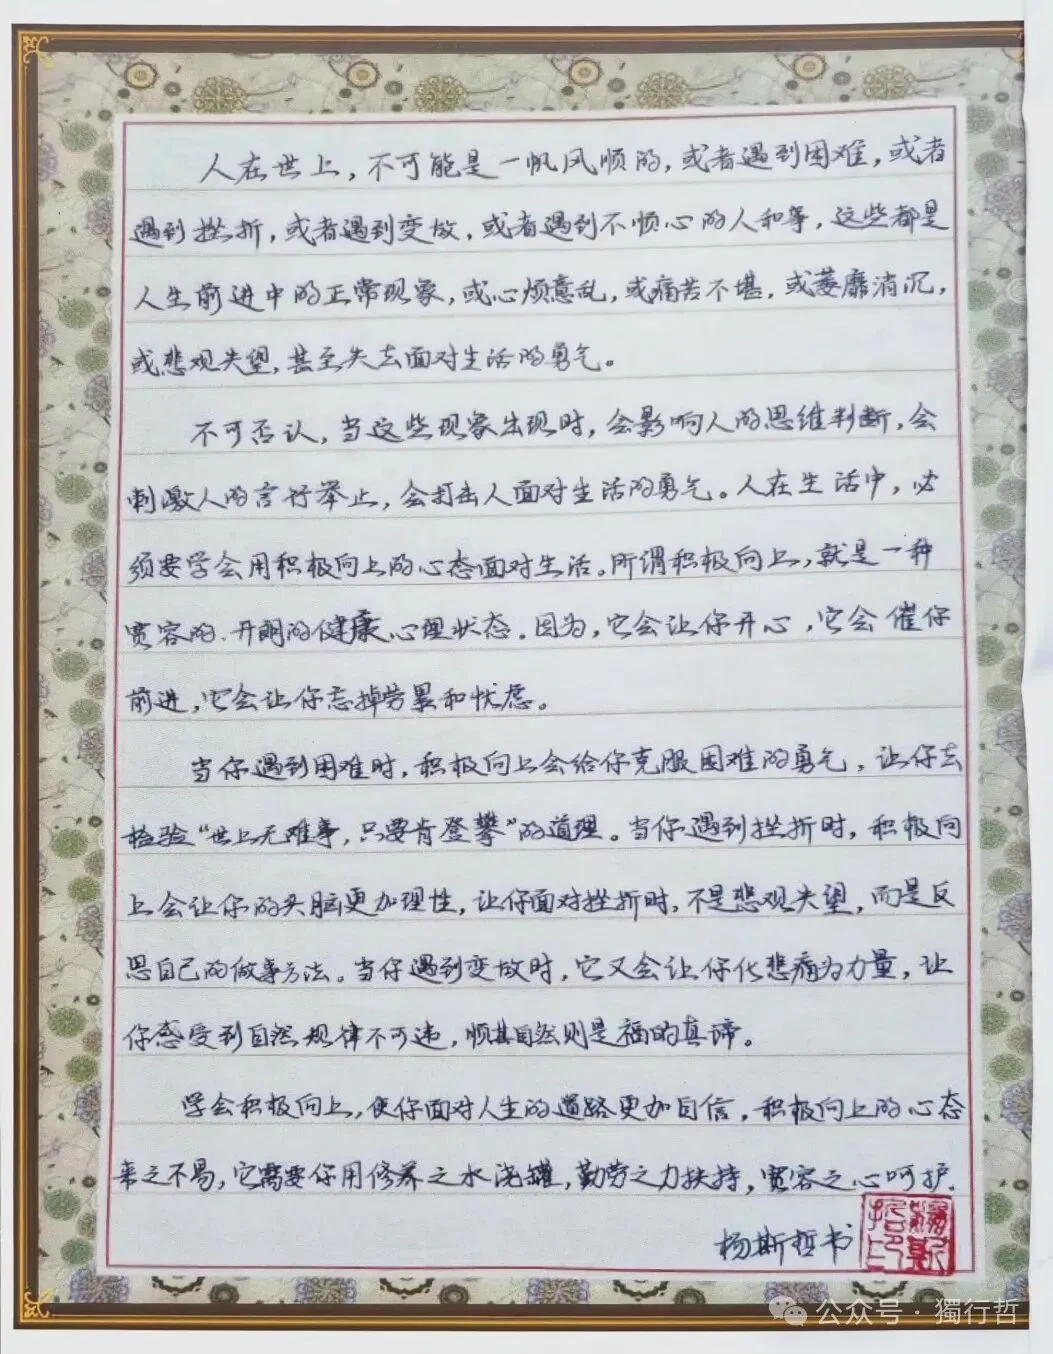 人在世上，不可能是一帆风顺的，或者遇到困难，或者
遇到挫折，或者遇到变故，或者遇到不顺心的人和事，这些都是
人生前进中的正常现象，或心烦意乱，或痛苦不堪，或萎靡消沉，
或悲观失望，甚至失去面对生活的勇气。
不可否认，当这些现象出现时，会影响人的思维判断，会
刺激人的言行举止，会打击人面对生活的勇气。人在生活中，必
须要学会用积极向上的心态面对生活。所谓积极向上，就是一种
宽容的、开朗的健康心理状态。因为，它会让你开心，它会催你
前进，它会让你忘掉劳累和忧虑。
当你遇到困难时，积极向上会给你克服困难的勇气，让你去
检验“世上无难事，只要肯登攀”的道理。当你遇到挫折时，积极向
上会让你的头脑更加理性，让你面对挫折时，不是悲观失望，而是反
思自己的做事方法。当你遇到变故时，它又会让你化悲痛为力量，让
你感受到自然规律不可违，顺其自然则是福的真谛。
学会积极向上，使你面对人生的道路更加自信，积极向上的心态
来之不易，它需要你用修养之水浇罐，勤劳之力扶持，宽容之心呵护.
杨斯哲书
公众号·獨行哲